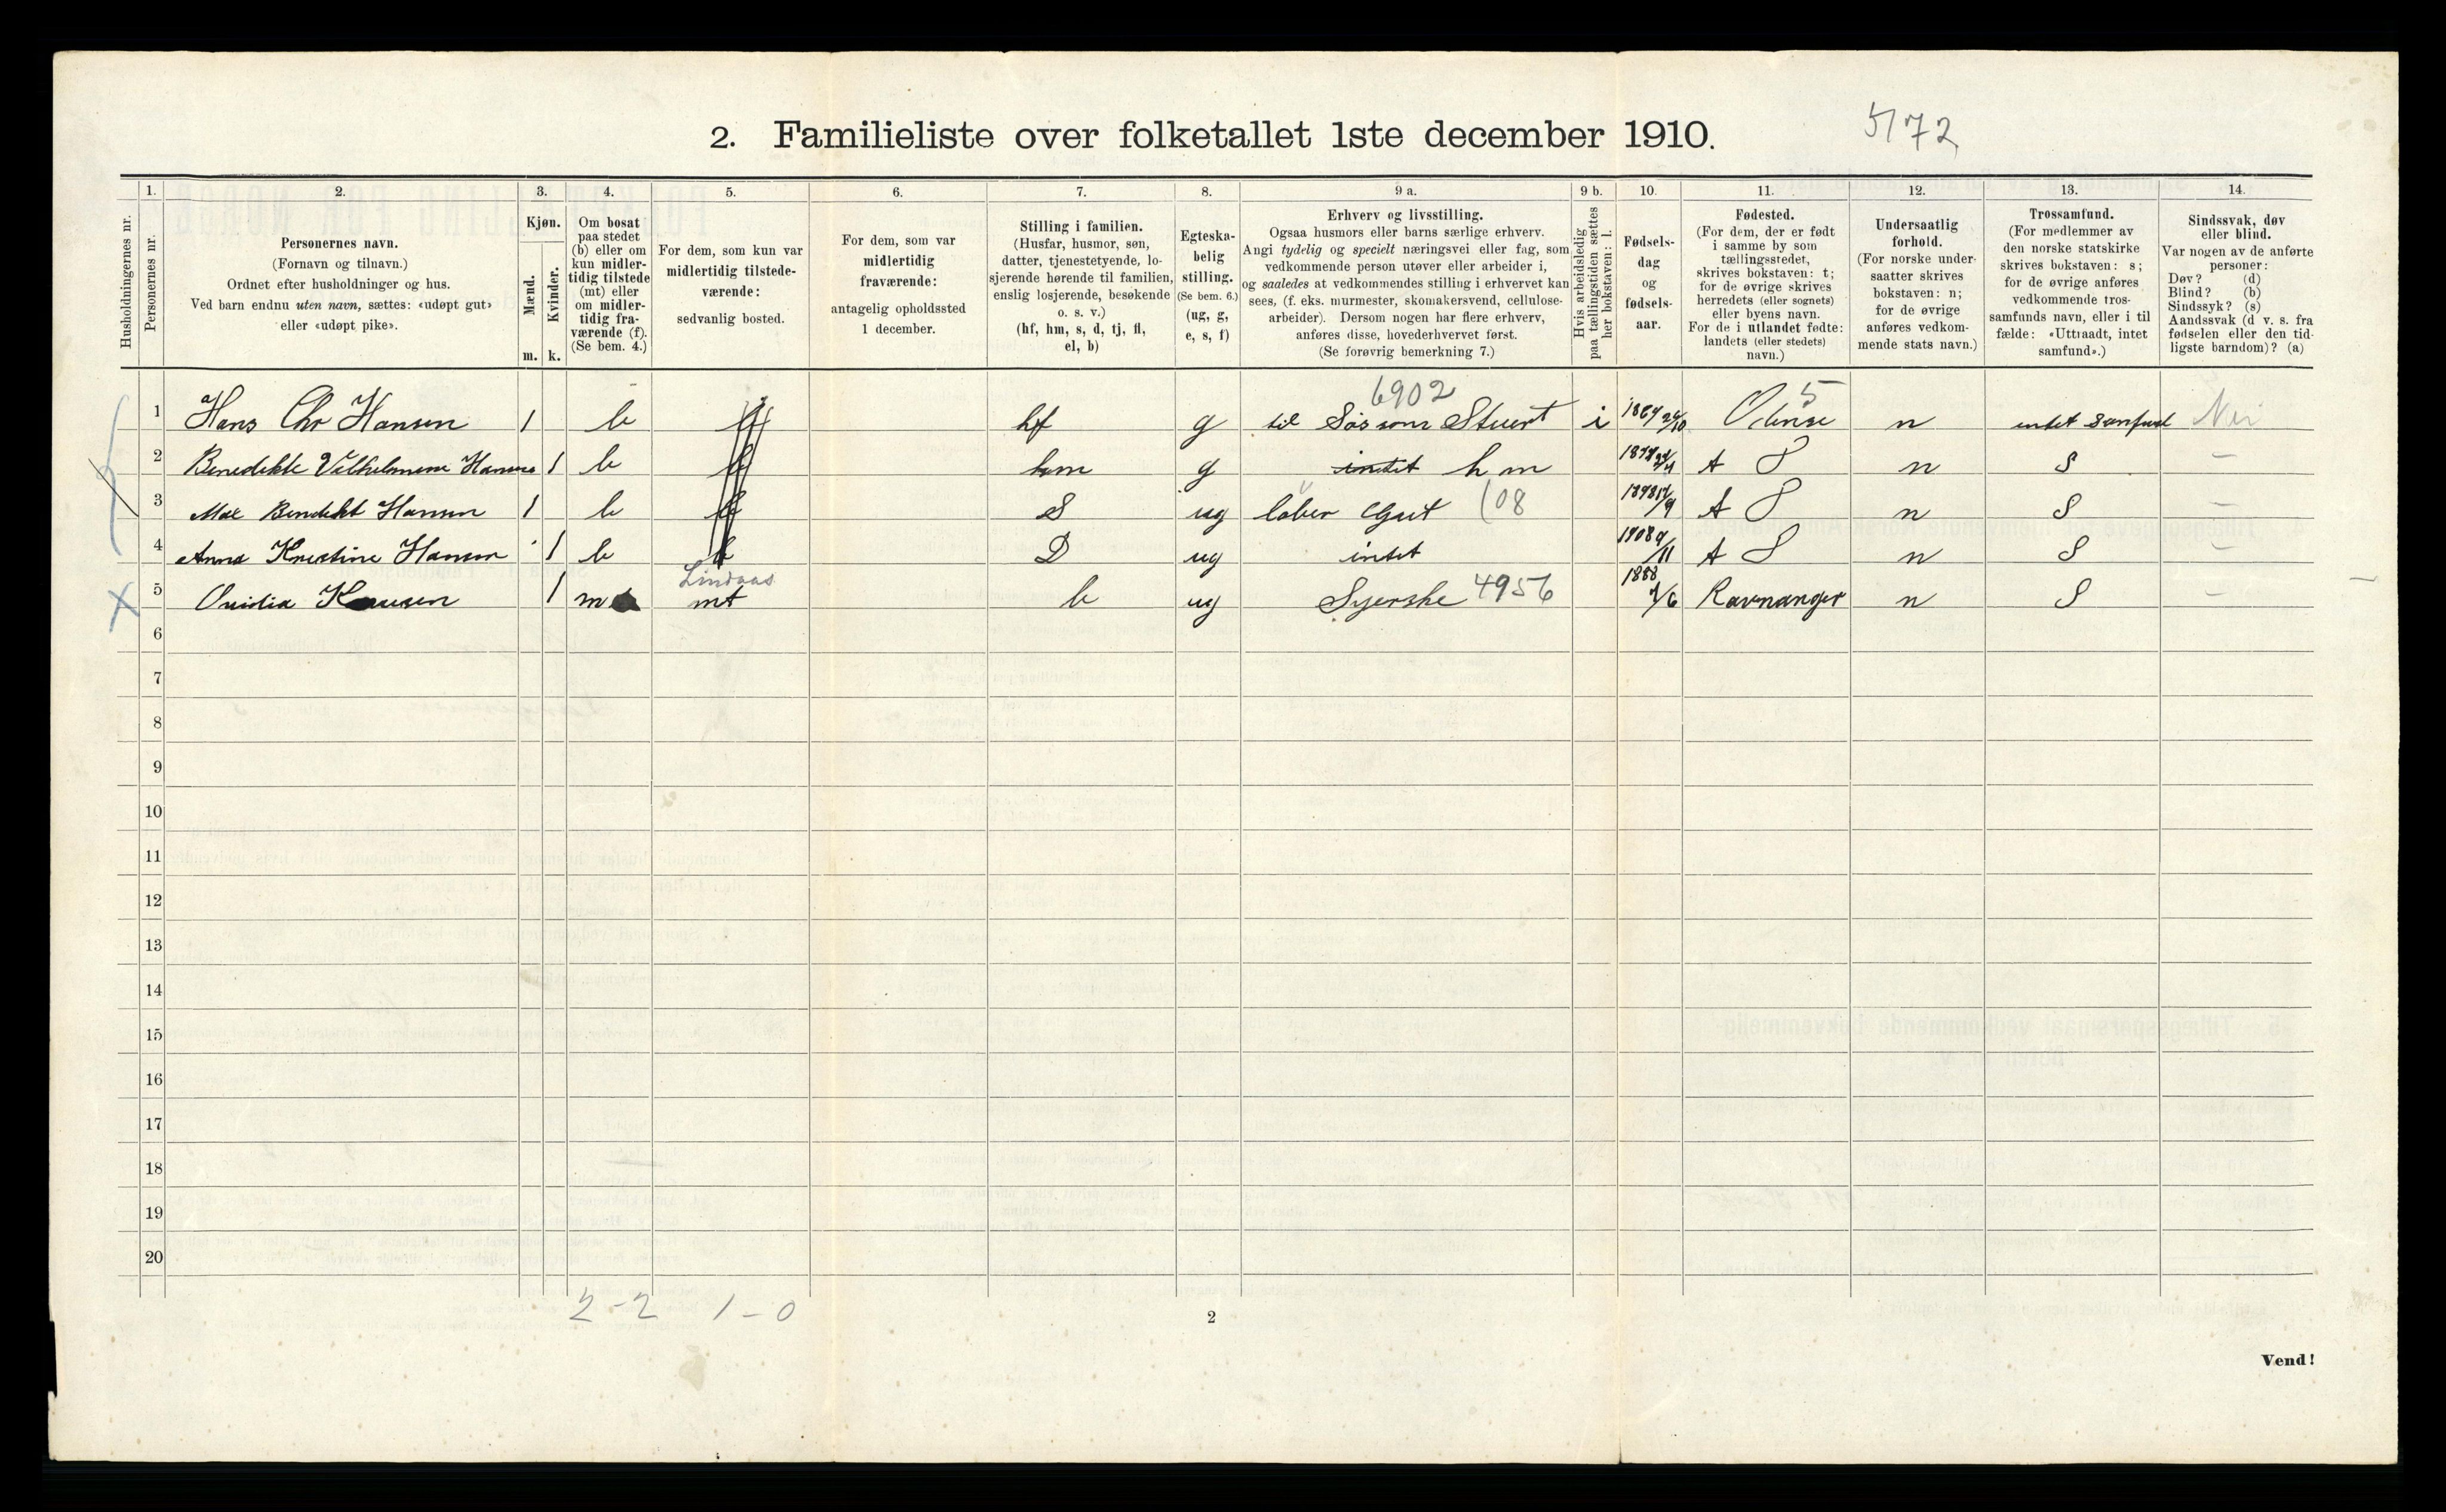 2. Familieliste over folketallet 1ste december 1910.
5172
Husholdningernes nr.
1.
Personernes nr.
2.
Personernes navn.
(Fornavn og tilnavn.)
Ordnet efter husholdninger og hus.
Ved barn endnu uten navn, sættes: «udøpt gut»
eller «udøpt pike».
3.
Kjøn.
Mænd.
Kvinder.
m. k.
4.
Om bosat
paa stedet
(b) eller om
kun midler-
tidig tilstede
(mt) eller
om midler-
tidig fra-
værende (f).
(Se bem. 4.)
5.
For dem, som kun var
midlertidig tilstede-
værende:
sedvanlig bosted.
6.
For dem, som var
midlertidig
fraværende:
antagelig opholdssted
1 december.
7.
Stilling i familien.
(Husfar, husmor, søn,
datter, tjenestetyende, lo-
sjerende hørende til familien,
enslig losjerende, besøkende
o. s. v.)
(hf, hm, s, d, tj, fl,
el, b)
8.
Egteska-
belig
stilling.
(Se bem. 6.)
(ug, g,
e, s, f)
9 a.
Erhverv og livsstilling.
Ogsaa husmors eller barns særlige erhverv.
Angi tydelig og specielt næringsvei eller fag, som
vedkommende person utøver eller arbeider i,
og saaledes at vedkommendes stilling i erhvervet kan
sees, (f. eks. murmester, skomakersvend, cellulose-
arbeider). Dersom nogen har flere erhverv,
anføres disse, hovederhvervet først.
(Se forøvrig bemerkning 7.)
9 b.
Hvis arbeidsledig
paa tællingstiden sættes
her bokstaven: l.
10.
Fødsels-
dag
og
fødsels-
aar.
11.
Fødested.
(For dem, der er født
i samme by som
tællingsstedet,
skrives bokstaven: t;
for de øvrige skrives
herredets (eller sognets)
eller byens navn.
For de i utlandet fødte:
landets (eller stedets)
navn.)
12.
Undersaatlig
forhold.
(For norske under-
saatter skrives
bokstaven: n;
for de øvrige
anføres vedkom-
mende stats navn.)
13.
Trossamfund.
(For medlemmer av
den norske statskirke
skrives bokstaven: s;
for de øvrige anføres
vedkommende tros-
samfunds navn, eller i til
fælde: «Uttraadt, intet
samfund».)
14.
Sindssvak, døv
eller blind.
Var nogen av de anførte
personer:
Døv? (d)
Blind? (b)
Sindssyk? (s)
Aandssvak (d v. s. fra
fødselen eller den tid-
ligste barndom)? (a)
6902 5
1 Hans Chr Hansen 1 b hf g til Søs som Stuert i Odense n intet Samfund Nei
2 Benedikte Vilhelmine Hansen 1 b b hm g intet h m n S –
3 Max Bendikt Hansen 1 b b S ug løber Gut 108 n S –
4 Anna Kristine Hansen 1 b b D ug intet 1908 n S –
Lindaas
5 1 m mt b ug Syerske 4956 1888 Ravnanger n S –
6
7
8
9
10
11
12
13
14
15
16
17
18
19
20
2-2 1-0
2
Vend!